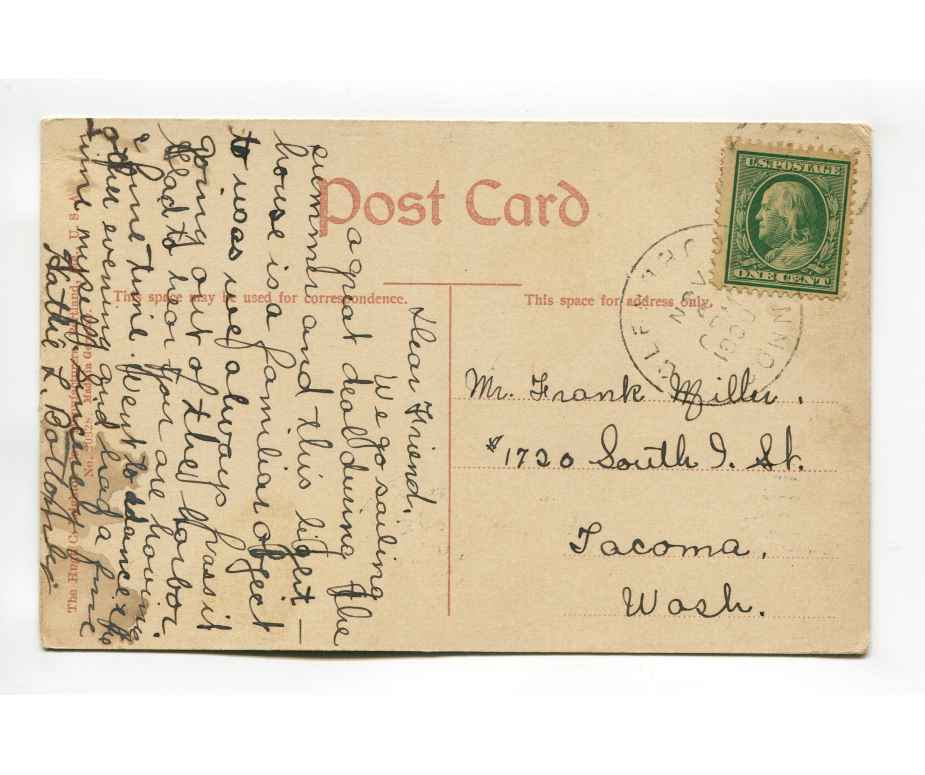 Post Card
U.S. POSTAGE
ONE CENT
This space may be used for correspondence.
This space for address only.
Dear Friend,
We go sailing
a great deal during the
summer and this light —
house is a familiar object
to us as we always pass it
going out of the Harbor
Glad to hear you are having
a fine time. Went to dance the
other evening and had a fine
time myself. Sincerely
Hattie L.
Mr. Frank Miller.
#1720 South I. St.
Tacoma,
Wash.
The Hugh C.
U. S. A.
No.